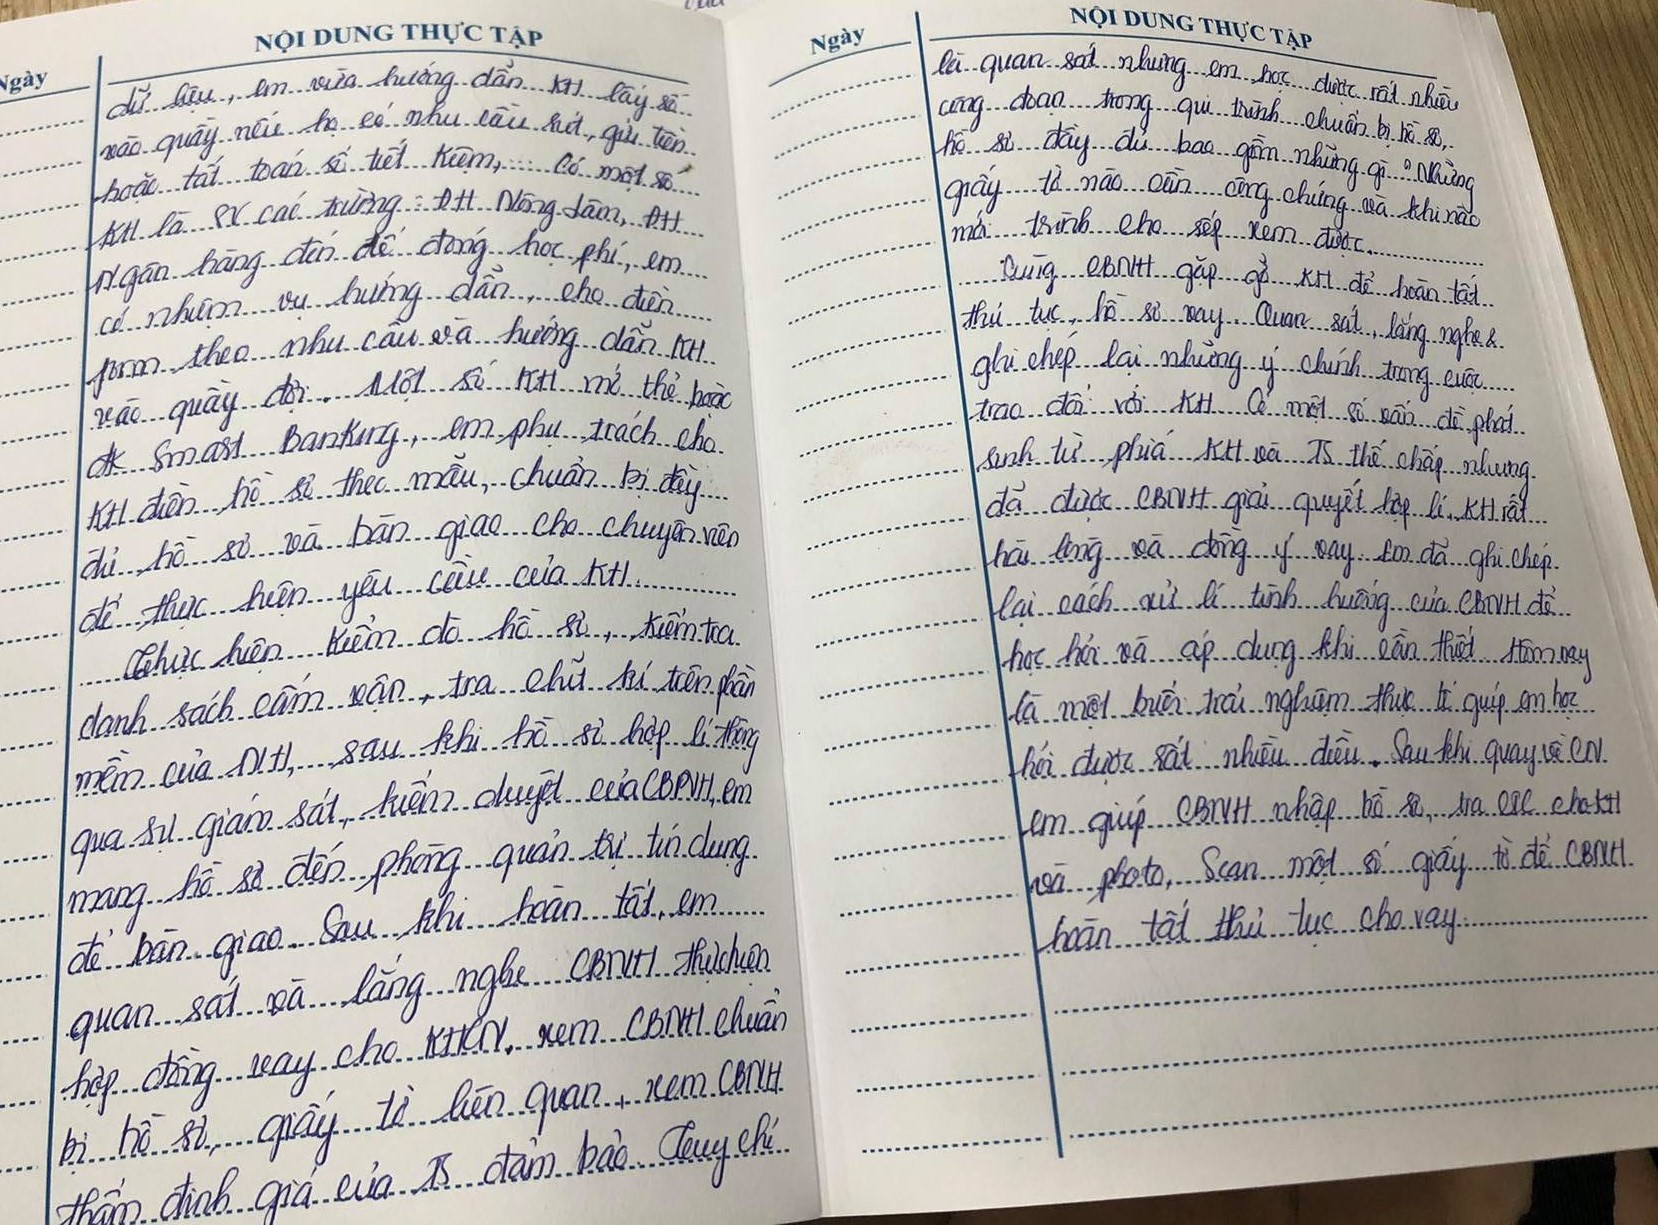 NỘI DUNG THỰC TẬP
Ngày
dữ liệu, em vừa hướng dẫn KH lấy số
vào quầy nếu họ có nhu cầu rút, gửi tiền
hoặc tất toán sổ tiết kiệm,... Có một số
KH là SV các trường: ĐH Nông Lâm, ĐH
Ngân hàng đến để đóng học phí, em
có nhiệm vụ hướng dẫn, cho điền
form theo nhu cầu và hướng dẫn KH
vào quầy đợi. Một số KH mở thẻ hoặc
đk Smart Banking, em phụ trách cho
KH điền hồ sơ theo mẫu, chuẩn bị đầy
đủ hồ sơ và bàn giao cho chuyên viên
để thực hiện yêu cầu của KH.
Thực hiện kiểm dò hồ sơ, kiểm tra
danh sách cấm vận, tra chữ kí trên phần
mềm của NH, sau khi hồ sơ hợp lí thông
qua sự giám sát, kiểm duyệt của CBNH, em
mang hồ sơ đến phòng quản trị tín dụng
để bàn giao. Sau khi hoàn tất, em
quan sát và lắng nghe CBNH thực hiện
hợp đồng vay cho KHCN, xem CBNH chuẩn
bị hồ sơ, giấy tờ liên quan, xem CBNH
thẩm định giá của TS đảm bảo. Tuy chỉ
NỘI DUNG THỰC TẬP
Ngày
là quan sát nhưng em học được rất nhiều
công đoạn trong qui trình chuẩn bị hồ sơ,
hồ sơ đầy đủ bao gồm những gì? Những
giấy tờ nào cần công chứng và khi nào
mới trình cho sếp xem được.
Cùng CBNH gặp gỡ KH để hoàn tất
thủ tục, hồ sơ vay. Quan sát, lắng nghe &
ghi chép lại những ý chính trong cuộc
trao đổi với KH. Có một số vấn đề phát
sinh từ phía KH và TS thế chấp nhưng
đã được CBNH giải quyết hợp lí, KH rất
hài lòng và đồng ý vay. Em đã ghi chép
lại cách xử lí tình huống của CBNH để
học hỏi và áp dụng khi cần thiết. Hôm nay
là một buổi trải nghiệm thực tế giúp em học
hỏi được rất nhiều điều. Sau khi quay về CN
em giúp CBNH nhập hồ sơ, tra CIC cho KH
và photo, Scan một số giấy tờ để CBNH
hoàn tất thủ tục cho vay.